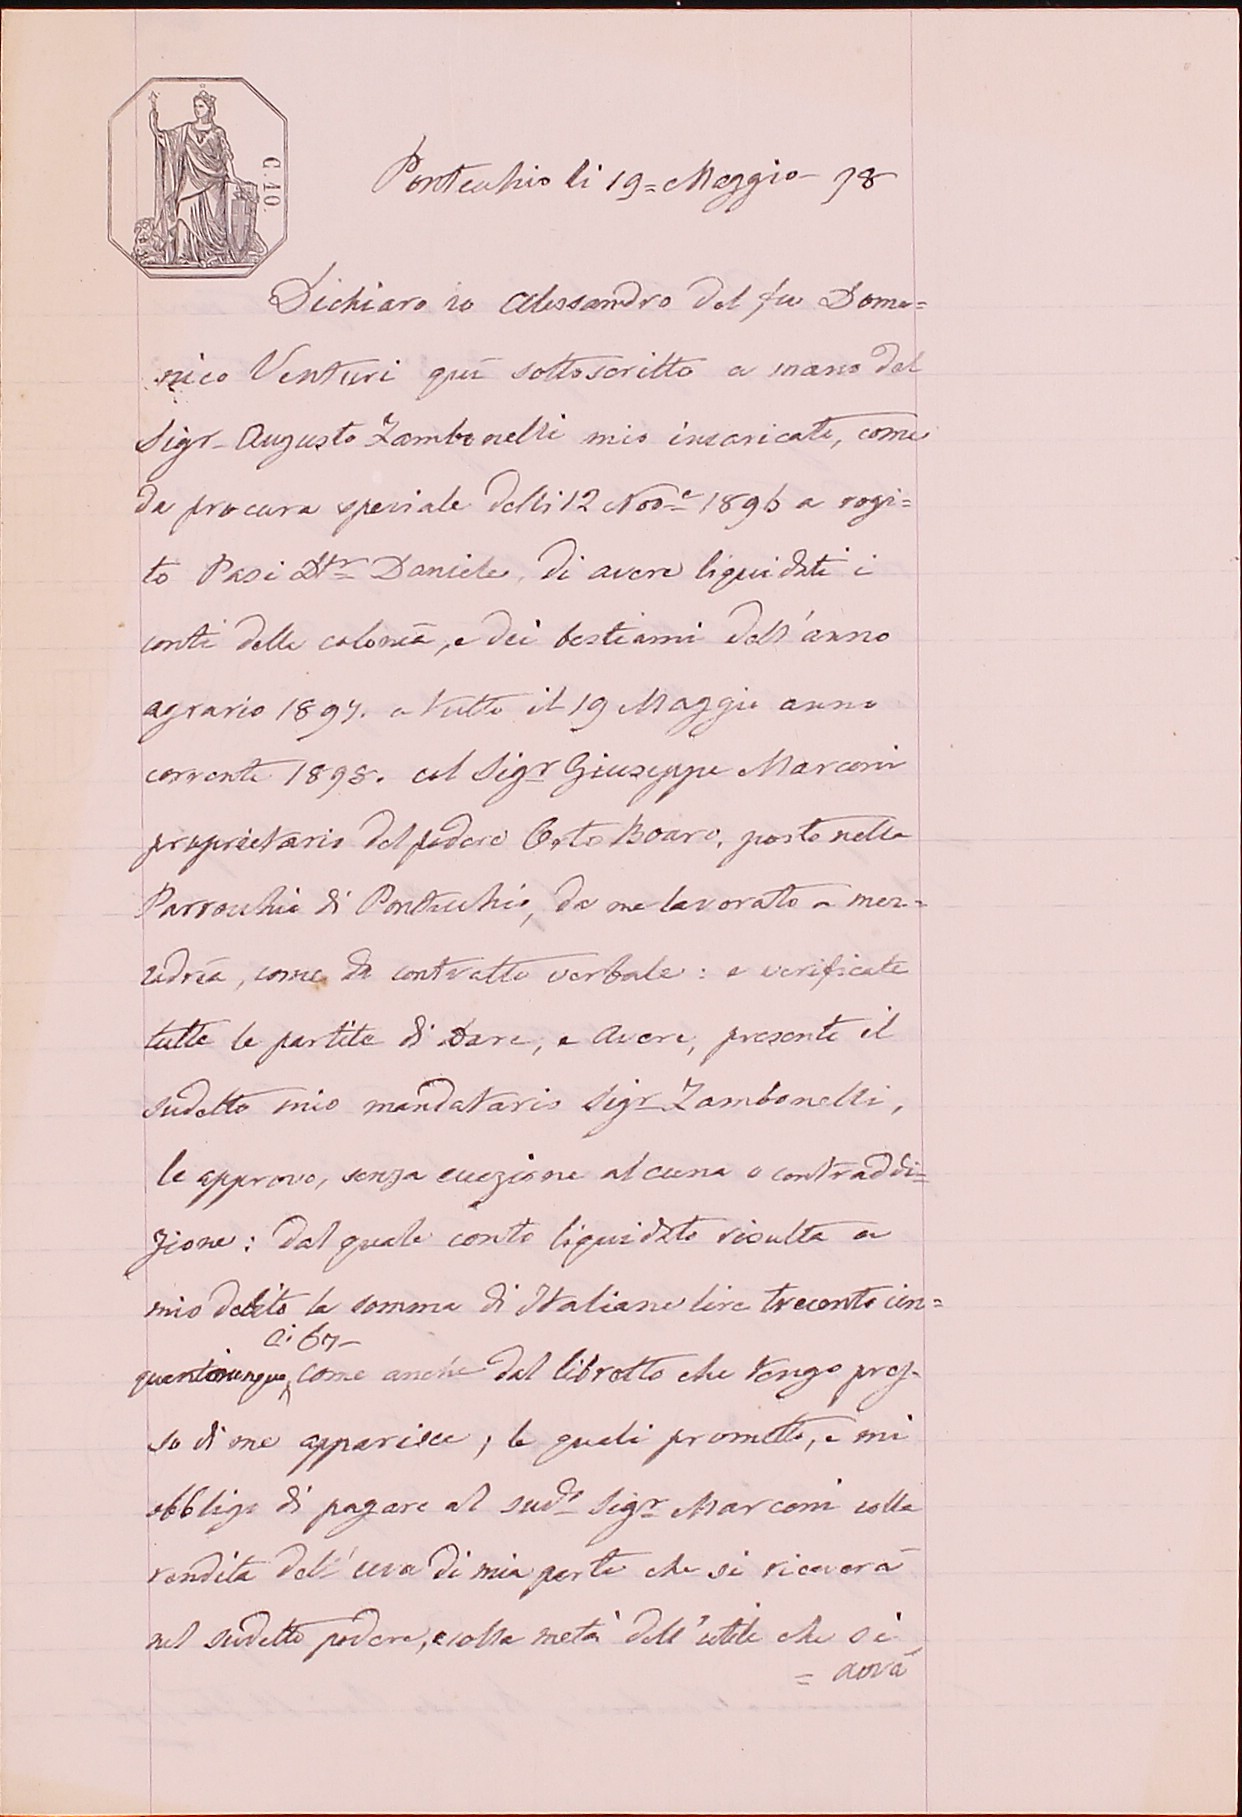 C. 10.
Pontecchio li 19= Maggio - 98
Dichiaro io Alessandro del fu Dome=
nico Venturi quì sottoscritto a mano del
Sigr. Augusto Zambonelli mio incaricato, come
da procura speciale delli 12 Nove. 1896 a rogi=
to Pasi Dtr. Daniele, di avere liquidati i
conti della colonìa, e dei bestiami dell'anno
agrario 1897. a tutto il 19 Maggio anno
corrente 1898. col Sigr. Giuseppe Marconi
proprietario del podere Orto Boaro, posto nella
Parrocchia di Pontecchio, da me lavorato a mez=
zadrìa, come da contratto verbale: e verificate
tutte le partite di Dare, e Avere, presente il
sudetto mio mandatario Sigr. Zambonelli,
le approvo, senza eccezione alcuna o contraddi=
zione: dal quale conto liquidato risulta a
mio debito la somma di Italiane lire trecento cin=
quantacinque, come anche dal libretto che tengo pres-
so di me apparisce, le quali prometto, e mi
obbligo di pagare al sudo. Sigr. Marconi colla
vendita dell'uva di mia parte che si riceverà
nel sudetto podere, e colla metà dell'utile che si
= avrà